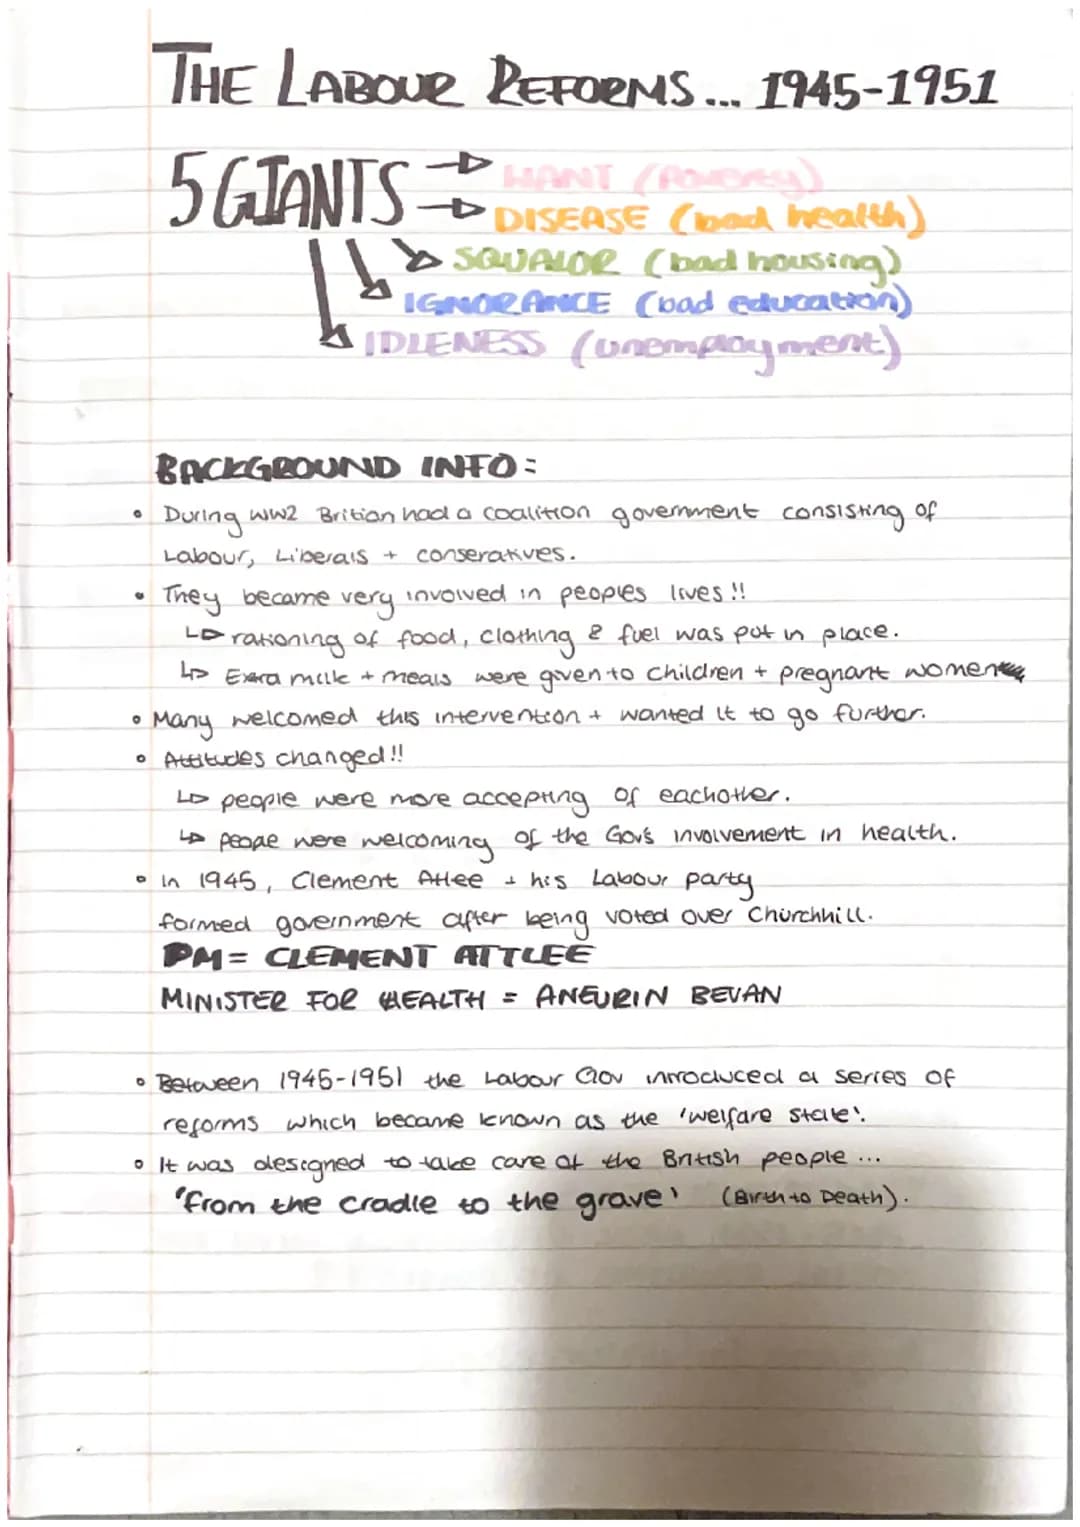 THE LABOUR REFORMS... 1945-1951
5 GIANTS → WANT (Poverty)
→ DISEASE (bad health)
SQUALOR (bad housing)
IGNORANCE (bad education)
IDLENESS (unemployment)
BACKGROUND INFO:
• During WW2 Britian had a coalition government consisting of
Labour, Liberals + conseratives.
• They became very involved in peoples lives!!
↳ rationing of food, clothing & fuel was put in place.
↳ Extra milk + meals were given to children + pregnant women
• Many welcomed this intervention + wanted it to go further.
• Attitudes changed!!
↳ people were more accepting of eachother.
↳ people were welcoming of the Gov's involvement in health.
• In 1945, Clement Attlee + his Labour party
formed government after being voted over Churchhill.
PM = CLEMENT ATTLEE
MINISTER FOR HEALTH = ANEURIN BEVAN
• Between 1945-1951 the Labour Gov introduced a series of
reforms which became known as the 'welfare state'.
• It was designed to take care of the British people...
'from the cradle to the grave' (Birth to Death).